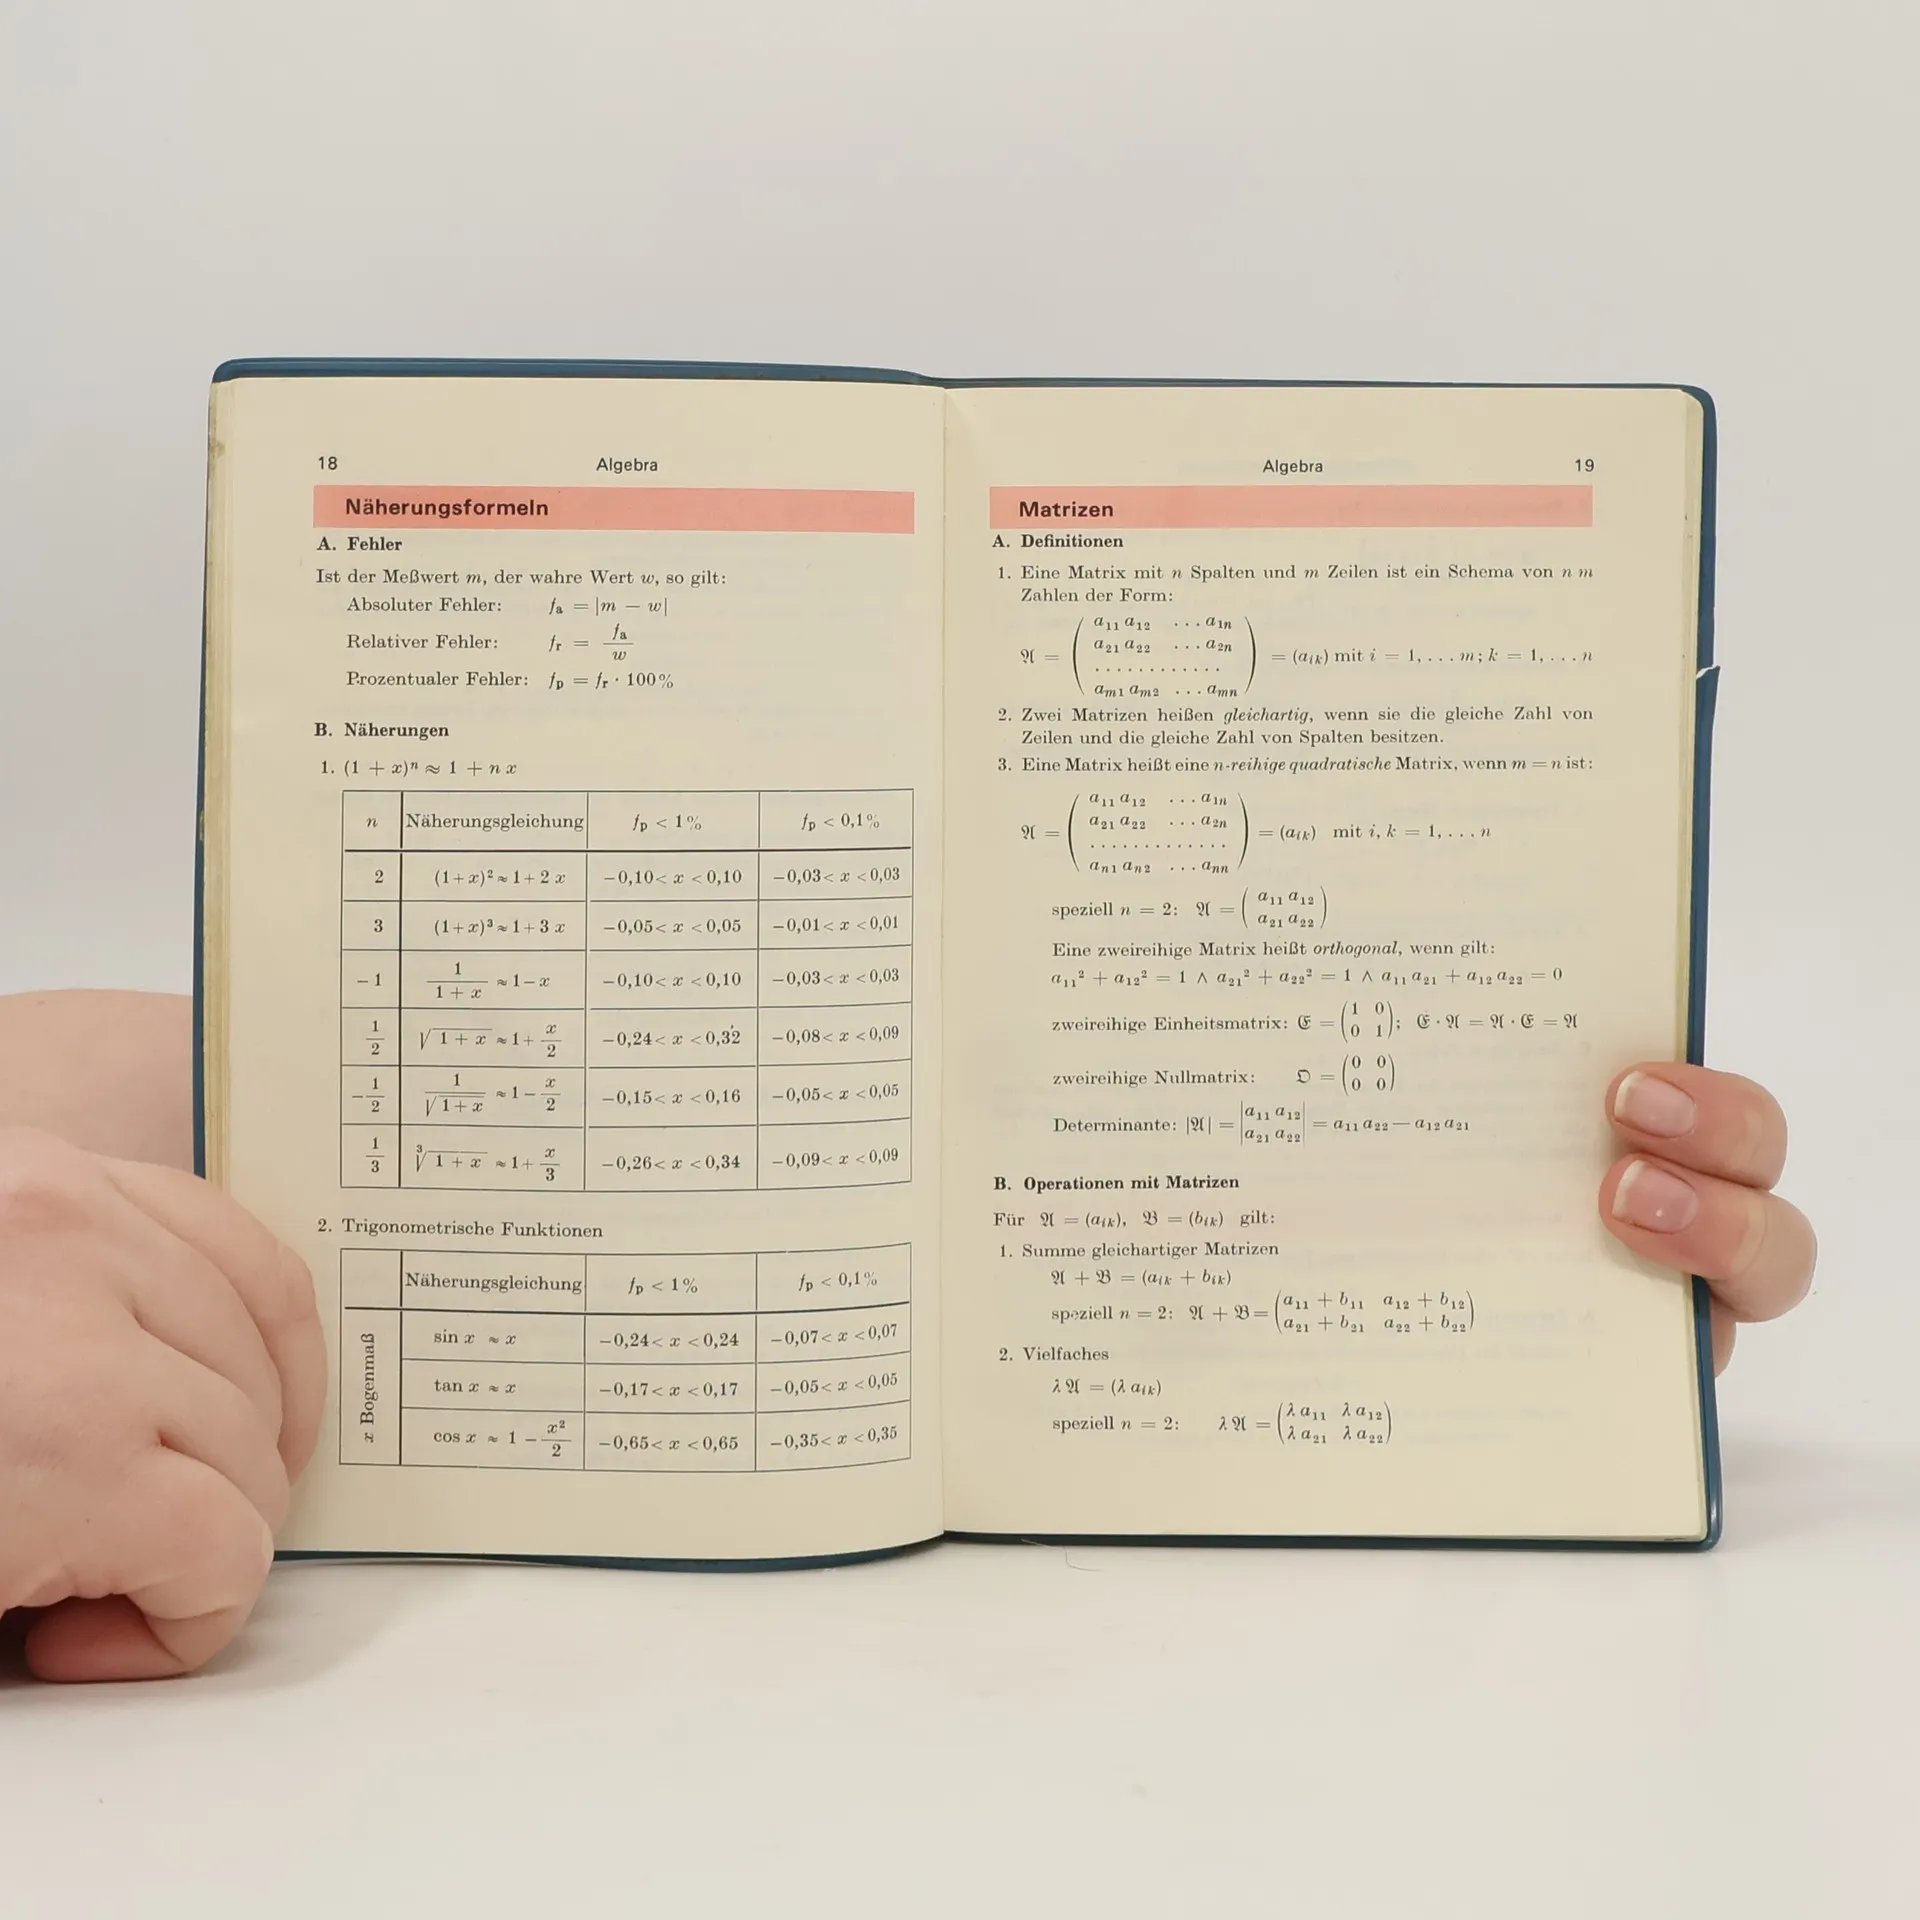 18 Algebra
Näherungsformeln
A. Fehler
Ist der Meßwert m, der wahre Wert w, so gilt:
Absoluter Fehler: fa = |m − w|
Relativer Fehler: fr = fa/w
Prozentualer Fehler: fp = fr · 100%
B. Näherungen
1. (1 + x)ⁿ ≈ 1 + n x
n Näherungsgleichung fp < 1% fp < 0,1%
2 (1+x)² ≈ 1+2 x −0,10< x <0,10 −0,03< x <0,03
3 (1+x)³ ≈ 1+3 x −0,05< x <0,05 −0,01< x <0,01
−1 1/(1 + x) ≈ 1−x −0,10< x <0,10 −0,03< x <0,03
1/2 √(1 + x) ≈ 1+ x/2 −0,24< x <0,32 −0,08< x <0,09
−1/2 1/√(1+x) ≈ 1− x/2 −0,15< x <0,16 −0,05< x <0,05
1/3 ∛(1 + x) ≈ 1+ x/3 −0,26< x <0,34 −0,09< x <0,09
2. Trigonometrische Funktionen
Näherungsgleichung fp < 1% fp < 0,1%
x Bogenmaß
sin x ≈ x −0,24< x <0,24 −0,07< x <0,07
tan x ≈ x −0,17< x <0,17 −0,05< x <0,05
cos x ≈ 1 − x²/2 −0,65< x <0,65 −0,35< x <0,35
Algebra 19
Matrizen
A. Definitionen
1. Eine Matrix mit n Spalten und m Zeilen ist ein Schema von n m
Zahlen der Form:
a₁₁ a₁₂ ... a₁n
a₂₁ a₂₂ ... a₂n
𝔄 = ............ = (aik) mit i = 1, ... m; k = 1, ... n
am1 am2 ... amn
2. Zwei Matrizen heißen gleichartig, wenn sie die gleiche Zahl von
Zeilen und die gleiche Zahl von Spalten besitzen.
3. Eine Matrix heißt eine n-reihige quadratische Matrix, wenn m = n ist:
a₁₁ a₁₂ ... a₁n
a₂₁ a₂₂ ... a₂n
𝔄 = ............. = (aik) mit i, k = 1, ... n
an1 an2 ... ann
speziell n = 2: 𝔄 = (a₁₁ a₁₂
a₂₁ a₂₂)
Eine zweireihige Matrix heißt orthogonal, wenn gilt:
a₁₁² + a₁₂² = 1 ∧ a₂₁² + a₂₂² = 1 ∧ a₁₁ a₂₁ + a₁₂ a₂₂ = 0
zweireihige Einheitsmatrix: 𝔈 = (1 0
0 1); 𝔈 · 𝔄 = 𝔄 · 𝔈 = 𝔄
zweireihige Nullmatrix: 𝔒 = (0 0
0 0)
Determinante: |𝔄| = |a₁₁ a₁₂
a₂₁ a₂₂| = a₁₁ a₂₂ − a₁₂ a₂₁
B. Operationen mit Matrizen
Für 𝔄 = (aik), 𝔅 = (bik) gilt:
1. Summe gleichartiger Matrizen
𝔄 + 𝔅 = (aik + bik)
speziell n = 2: 𝔄 + 𝔅 = (a₁₁ + b₁₁ a₁₂ + b₁₂
a₂₁ + b₂₁ a₂₂ + b₂₂)
2. Vielfaches
λ 𝔄 = (λ aik)
speziell n = 2: λ 𝔄 = (λ a₁₁ λ a₁₂
λ a₂₁ λ a₂₂)